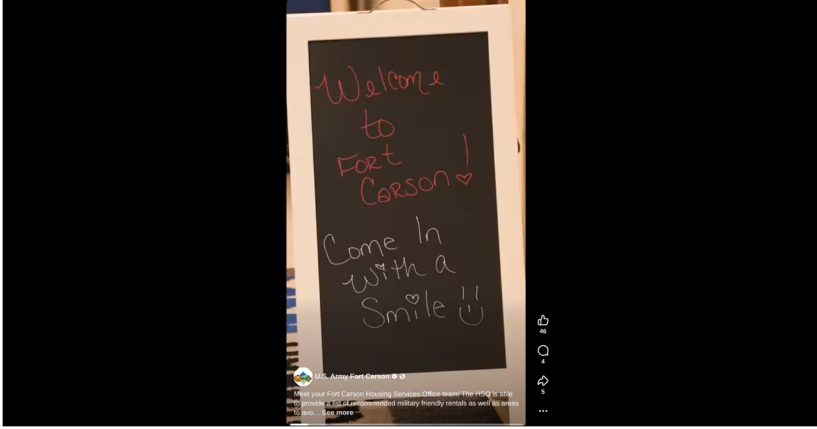 Welcome
to
Fort
Carson!
Come In
with a
Smile
U.S. Army Fort Carson
Meet your Fort Carson Housing Services Office team! The HSO is able
to provide a list of recommended military friendly rentals as well as areas
to avo... See more
46
4
5